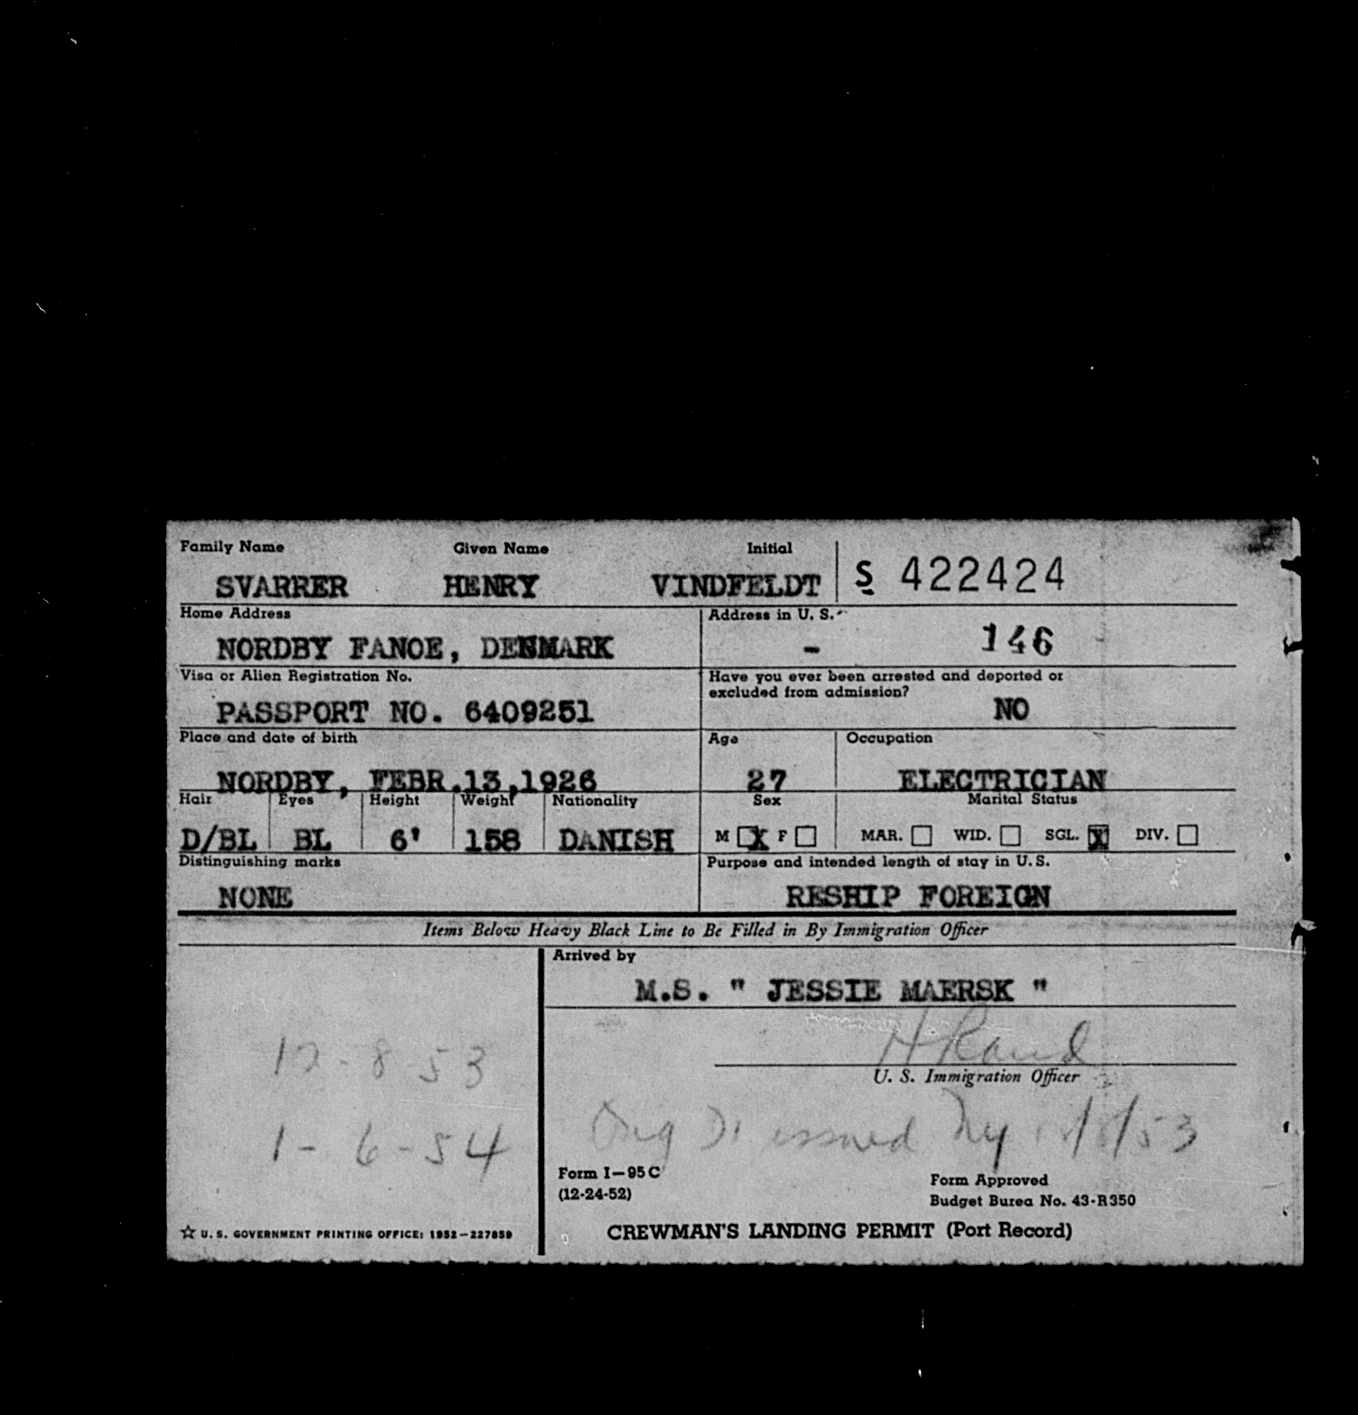 Family Name Given Name Initial
SVARRER HENRY VINDFELDT S 422424
Home Address Address in U. S.
NORDBY FANOE, DENMARK - 146
Visa or Alien Registration No. Have you ever been arrested and deported or
excluded from admission?
PASSPORT NO. 6409251 NO
Place and date of birth Age Occupation
NORDBY, FEBR.13,1926 27 ELECTRICIAN
Hair Eyes Height Weight Nationality Sex Marital Status
D/BL BL 6' 158 DANISH M X F MAR. WID. SGL. X DIV.
Distinguishing marks Purpose and intended length of stay in U.S.
NONE RESHIP FOREIGN
Items Below Heavy Black Line to Be Filled in By Immigration Officer
Arrived by
M.S. " JESSIE MAERSK "
12-8 53
U. S. Immigration Officer
1-6-54
issued Ny 12/8/53
Form I-95C
(12-24-52)
Form Approved
Budget Burea No. 43-R350
☆ U. S. GOVERNMENT PRINTING OFFICE: 1952-227859
CREWMAN'S LANDING PERMIT (Port Record)